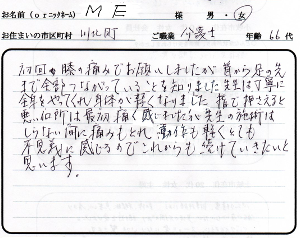 お名前(orニックネーム) M E 様 男・女
お住まいの市区町村 川北町 ご職業 介護士 年齢 66代
初回 膝の痛みでお願いしましたが 首から足の先
まで全部つながっていることを知りました 先生は丁寧に
全身をやってくれ身体が軽くなりました 指で押さえると
悪い所は最初痛く感じれたが先生の施術は
しらない間に痛みもとれ 身体も軽くとても
不思議に感じるのでこれからも続けていきたいと
思います。